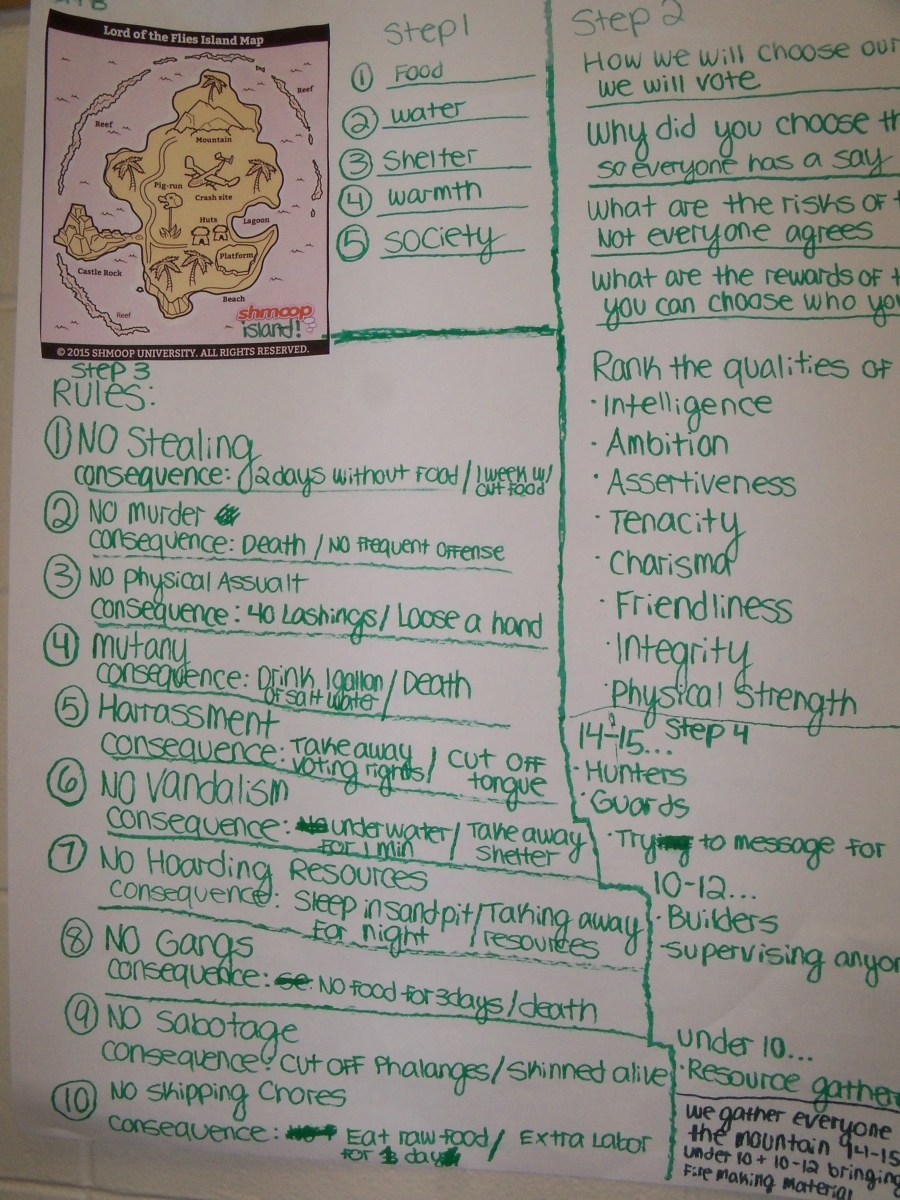 Lord of the Flies Island Map
Reef
Reef
Mountain
Pig-run
Crash site
Huts
Lagoon
Platform
Castle Rock
Beach
Reef
shmoop
island!
© 2015 SHMOOP UNIVERSITY. ALL RIGHTS RESERVED.
Step 1
① Food
② water
③ Shelter
④ warmth
⑤ society
Step 2
How we will choose our
we will vote
Why did you choose th
so everyone has a say
What are the risks of t
Not everyone agrees
What are the rewards of t
you can choose who you
Rank the qualities of
· Intelligence
· Ambition
· Assertiveness
· Tenacity
· Charisma
· Friendliness
· Integrity
· Physical Strength
Step 3
RULES:
① NO Stealing
consequence: 2 days without food / 1 week w/
out food
② NO murder
consequence: Death / NO frequent offense
③ NO Physical Assualt
consequence: 40 Lashings / Loose a hand
④ mutany
consequence: Drink 1 gallon / Death
of salt water
⑤ Harrassment
consequence: Take away / cut off
voting rights / tongue
⑥ NO Vandalism
consequence: underwater / Take away
for 1 min shelter
⑦ NO Hoarding Resources
consequence: Sleep in sand pit / Taking away
for night / resources
⑧ NO Gangs
consequence: No food for 3 days / death
⑨ NO Sabotage
consequence: cut off Phalanges / Skinned alive
⑩ NO Skipping Chores
consequence: Eat raw food / Extra Labor
for day
Step 4
14-15...
· Hunters
· Guards
· Try to message for
10-12...
· Builders
supervising anyon
under 10...
· Resource gather
we gather everyone
the mountain 14-15
under 10 + 10-12 bringing
Fire making material